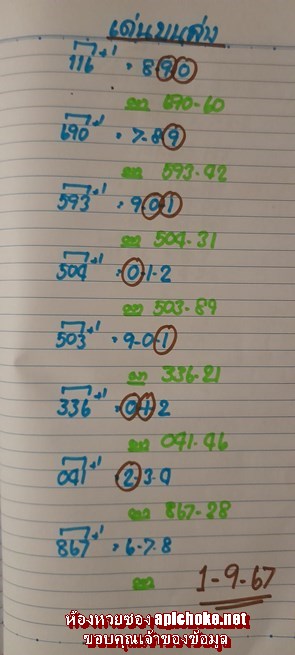 เด่นบนล่าง
116 +1 = 8 9 0
ออก 690-60
690 +1 = 7-8 9
ออก 593-42
593 +1 = 9-0 1
ออก 504-31
504 +1 = 0-1-2
ออก 503-89
503 +1 = 9-0-1
ออก 336-21
336 +1 = 0 1 2
ออก 041-46
041 +1 = 2-3-4
ออก 867-28
867 +1 = 6-7-8
ออก 1-9-67
ห้องหวยซอง aplchoke.net
ขอบคุณเจ้าของข้อมูล